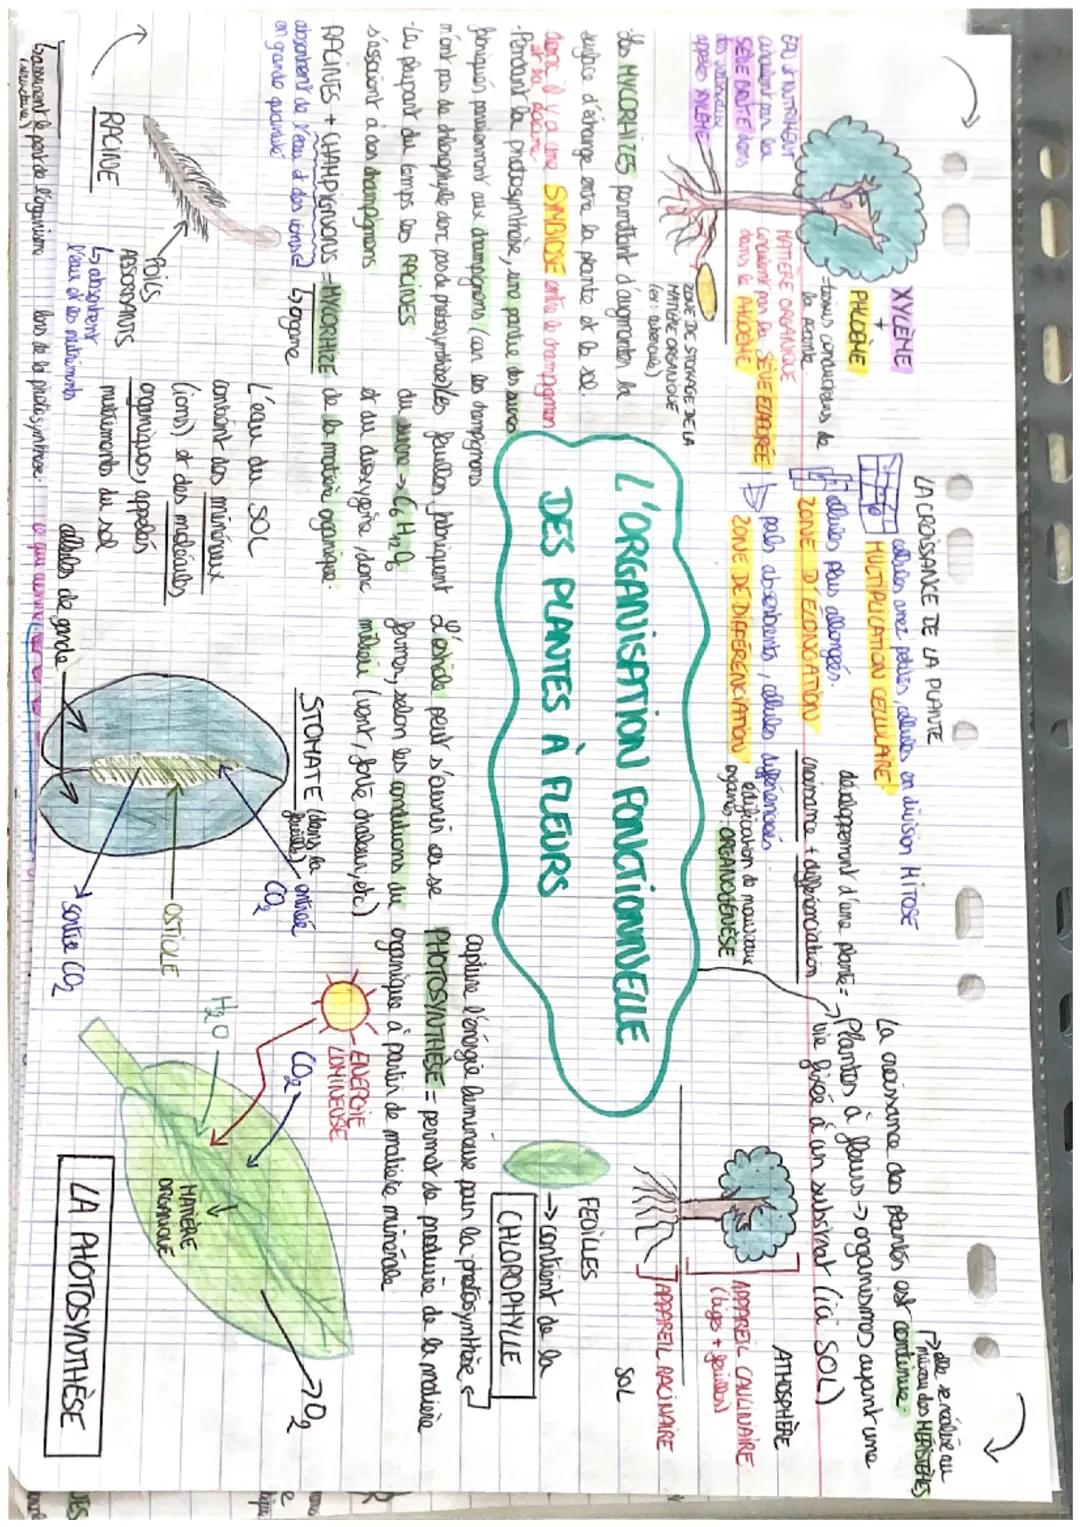 L'ORGANISATION FONCTIONNELLE
DES PLANTES À FLEURS
XYLÈME
+
PHLOÈME
= tissus conducteurs de
la plante
EAU + NUTRIMENT
circulent par la
SÈVE BRUTE dans
des vaisseaux
appelés XYLÈME
MATIÈRE ORGANIQUE
circulent par la SÈVE ELABORÉE
dans le PHLOÈME
ZONE DE STOCKAGE DE LA
MATIÈRE ORGANIQUE
(ex: tubercule)
les MYCORHIZES permettant d'augmenter la
surface d'échange entre la plante et le sol.
donc il y a une SYMBIOSE entre le champignon
et la racine
- Pendant la photosynthèse, une partie des sucres
fabriqués parviennent aux champignons (car les champignons
n'ont pas de chlorophylle donc pas de photosynthèse)
- La plupart du temps les RACINES
s'associent à des champignons
RACINES + CHAMPIGNONS = MYCORHIZE
absorbent de l'eau et des ions
en grande quantité
↳ organe
RACINE
POILS
ABSORBANTS
↳ absorbent
l'eau et les nutriments
L'eau du SOL
contient des minéraux
(ions) et des molécules
organiques, appelés
nutriments du sol
LA CROISSANCE DE LA PLANTE
cellules assez petites, cellules en division MITOSE
MULTIPLICATION CELLULAIRE
cellules plus allongés.
ZONE D'ÉLONGATION
poils absorbants, cellules différenciés
ZONE DE DIFFÉRENCIATION
développement d'une plante =
croissance + différenciation
édification de nouveaux
organes: ORGANOGÉNÈSE
La croissance des plantes est continue =
→ elle se réalise au
niveau des MÉRISTÈMES
Plantes à fleurs => organismes ayant une
vie fixée à un substrat (ici SOL)
ATMOSPHÈRE
APPAREIL CAULINAIRE
(tiges + feuilles)
APPAREIL RACINAIRE
SOL
FEUILLES
→ contient de la
CHLOROPHYLLE
capture l'énergie lumineuse pour la photosynthèse
PHOTOSYNTHÈSE = permet de produire de la matière
organique à partir de matière minérale
Les feuilles fabriquent
du sucre => C6 H12 O6
et du dioxygène, donc
de la matière organique.
L'ostiole peut s'ouvrir ou se
fermer, selon les conditions du
milieu (vent, forte chaleur, etc)
STOMATE (dans la
feuille)
entrée
CO2
OSTIOLE
sortie CO2
cellules de garde
ENERGIE
LUMINEUSE
CO2
H2O
MATIÈRE
ORGANIQUE
O2
LA PHOTOSYNTHÈSE
lors de la photosynthèse